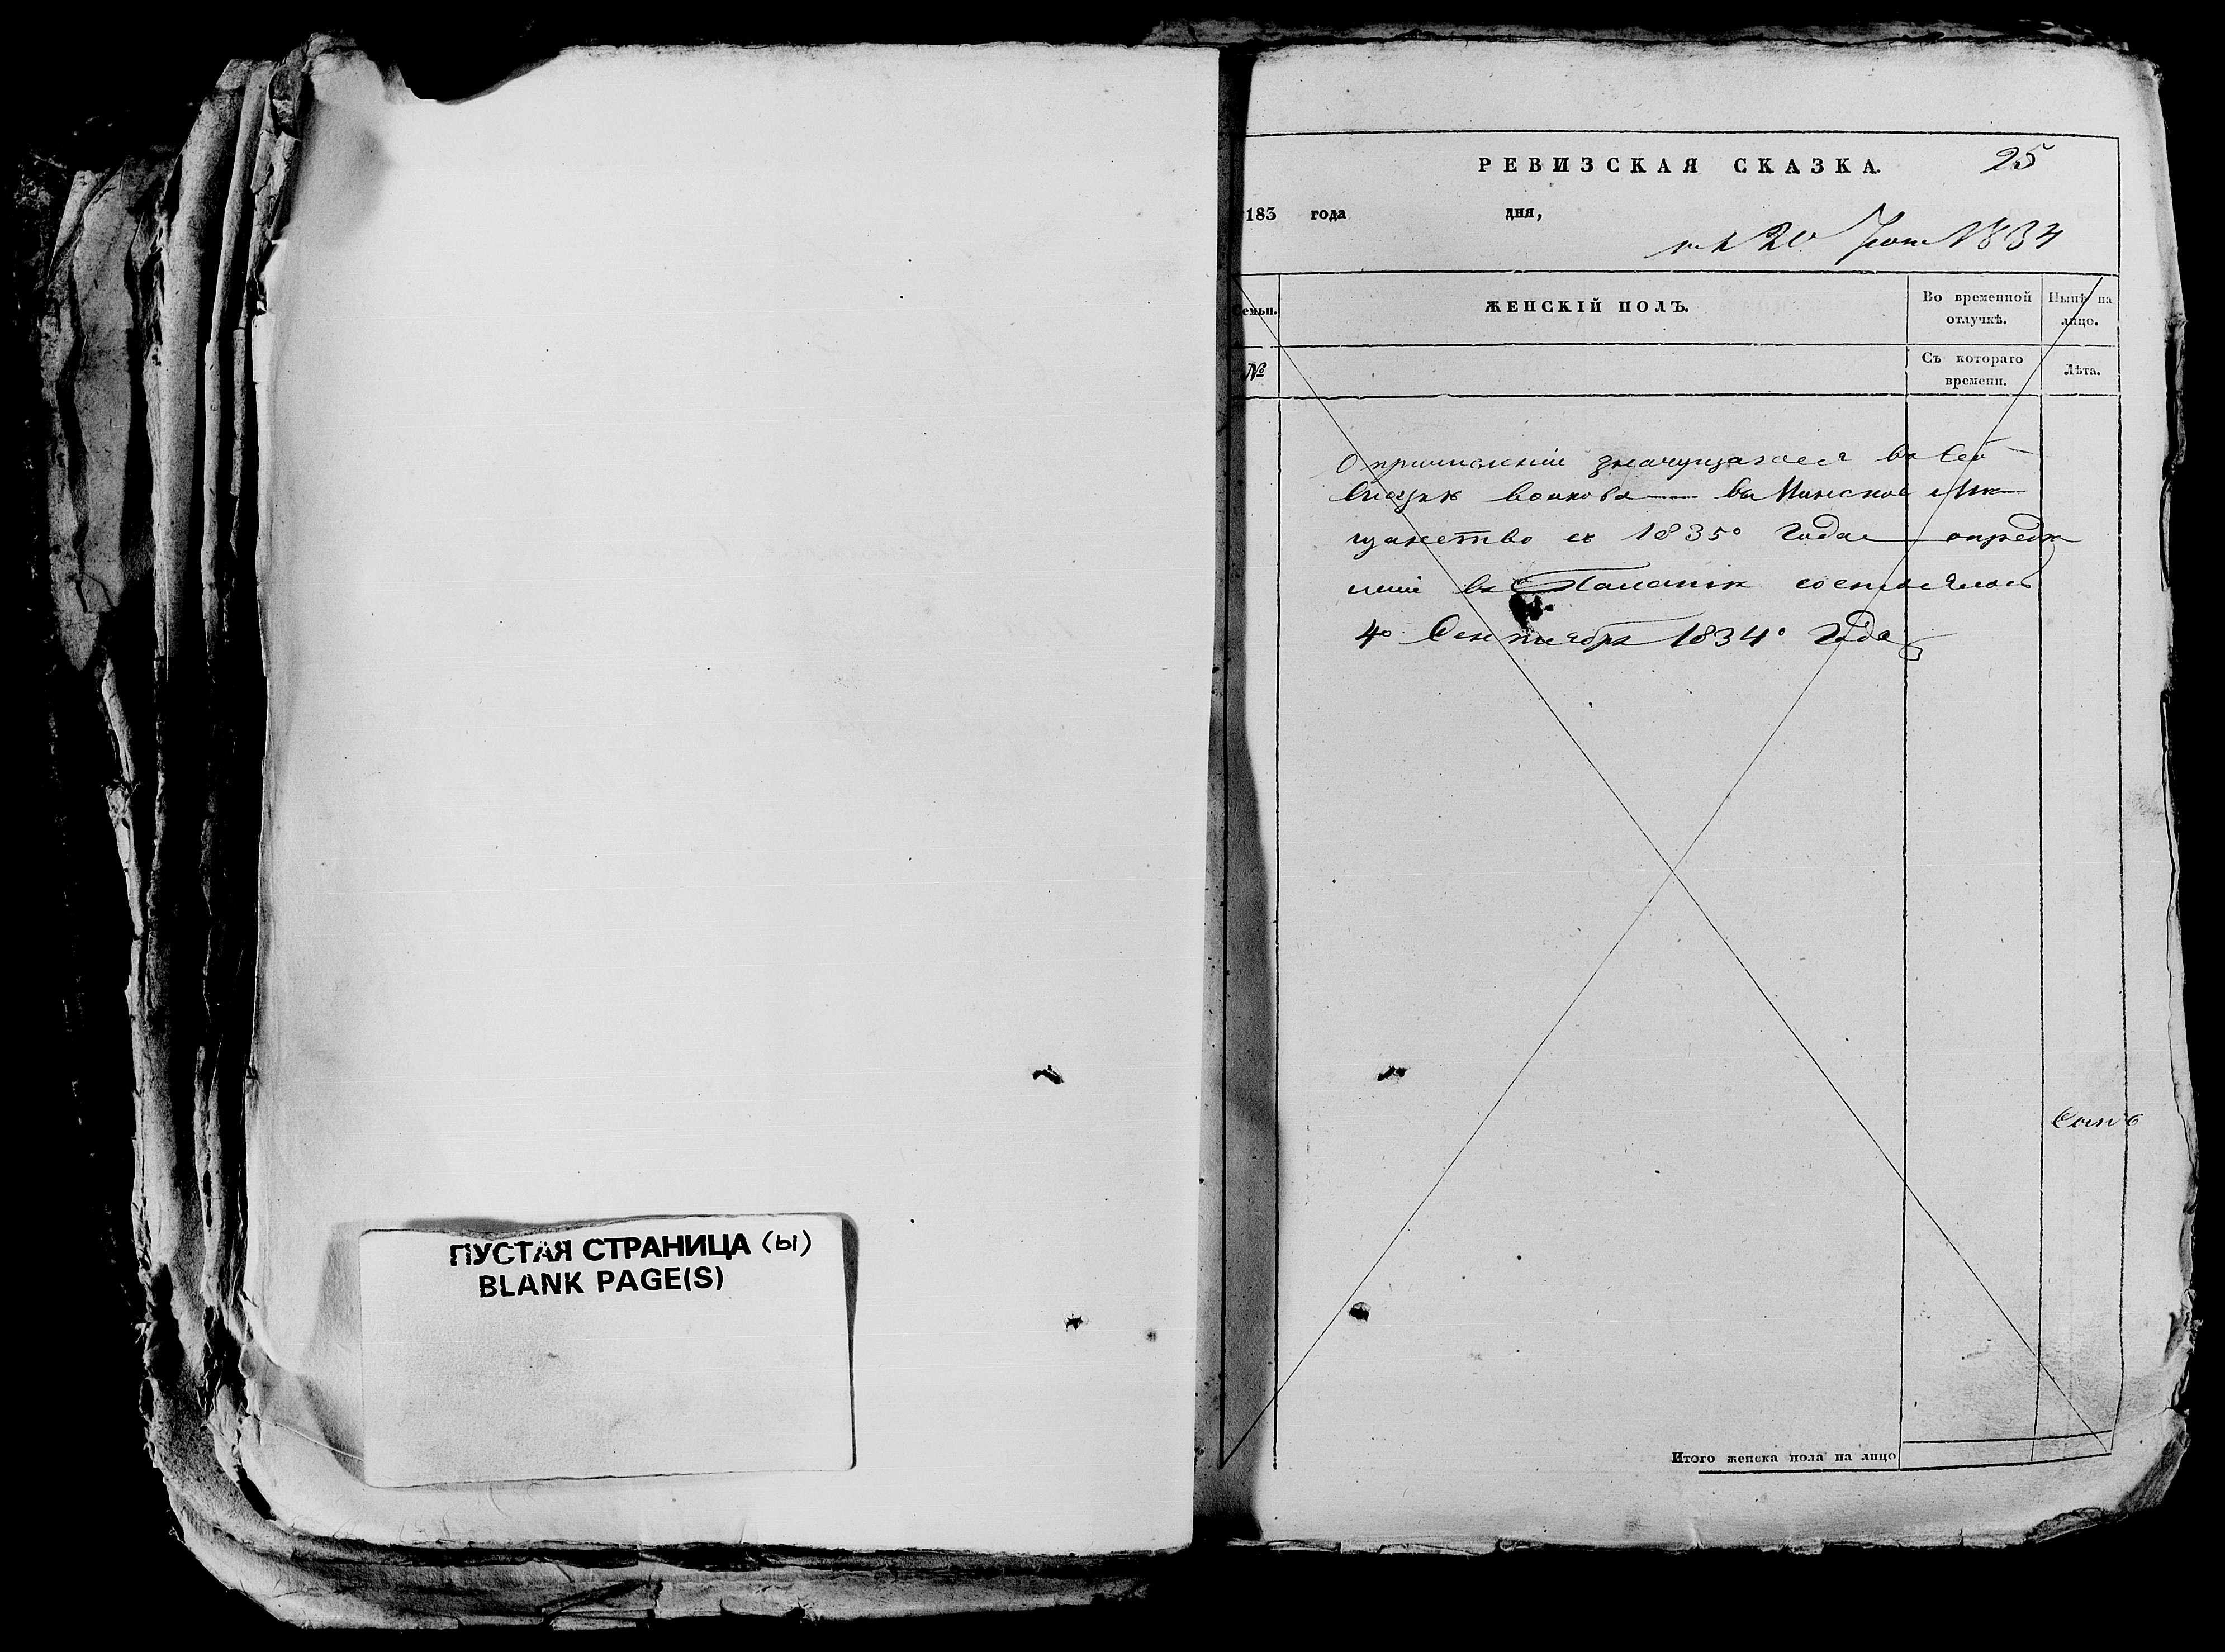 ПУСТАЯ СТРАНИЦА (Ы)
BLANK PAGE(S)
РЕВИЗСКАЯ СКАЗКА.
25
183 года дня,
20 1834
Семьи.
ЖЕНСКІЙ ПОЛЪ.
Во временной отлучкѣ.
Нынѣ на лицо.
№
Съ котораго времени.
Лѣта.
О причисленіи значущагося въ сей
Сказкѣ въ Минское Мѣ
щанство съ 1835º года опредѣ
леніе въ Палатѣ состоялось
4º Сентября 1834º Года
Итого женска пола на лицо